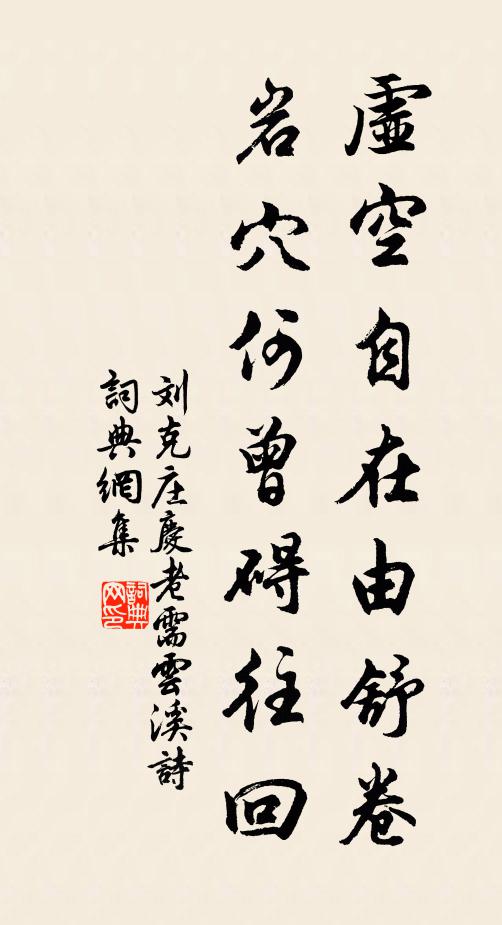 虛空自在由舒卷
岩穴何曾碍往回
刘克庄慶老需雲溪詩
詞典網集
詞典
网印